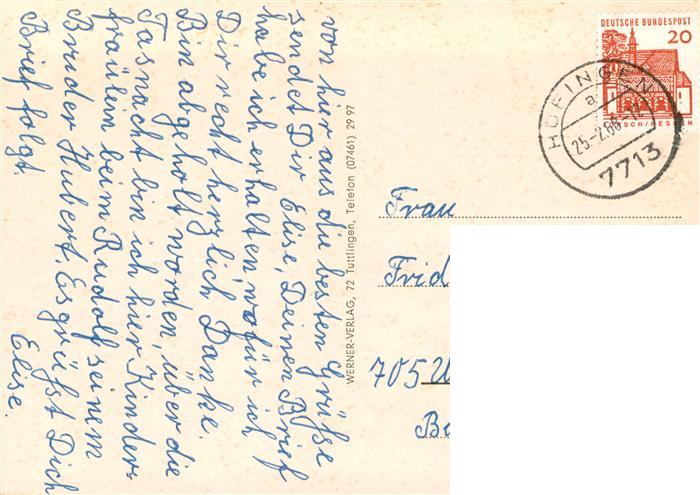 von hier aus die besten Grüße
sendet Dir Elise, Deinen Brief
habe ich erhalten wofür ich
Dir recht herzlich Danke.
Bin abgeholt worden, über die
Fasnacht bin ich hier Kinder-
fräulein beim Rudolf seinem
Bruder Hubert. Es grüßt Dich
Brief folgt. Elise.
WERNER-VERLAG, 72 Tuttlingen, Telefon (07461) 29 97
DEUTSCHE BUNDESPOST
20
LORSCH/HESSEN
HÜFINGEN
a
25.-2.66-12
7713
Frau
Frid
705 W
Be